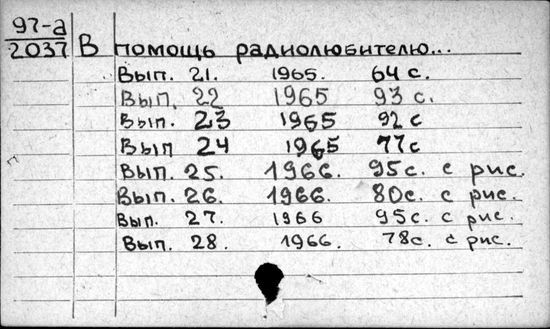 97-а
2037 В помощь радиолюбителю...
Вып. 21. 1965. 64 с.
Вып. 22 1965 93 с.
Вып. 23 1965 92 с
Вып 24 1965 77 с
Вып. 25. 1966. 95с. с рис.
Вып. 26. 1966. 80с. с рис.
Вып. 27. 1966 95с. с рис.
Вып. 28. 1966. 78с. с рис.